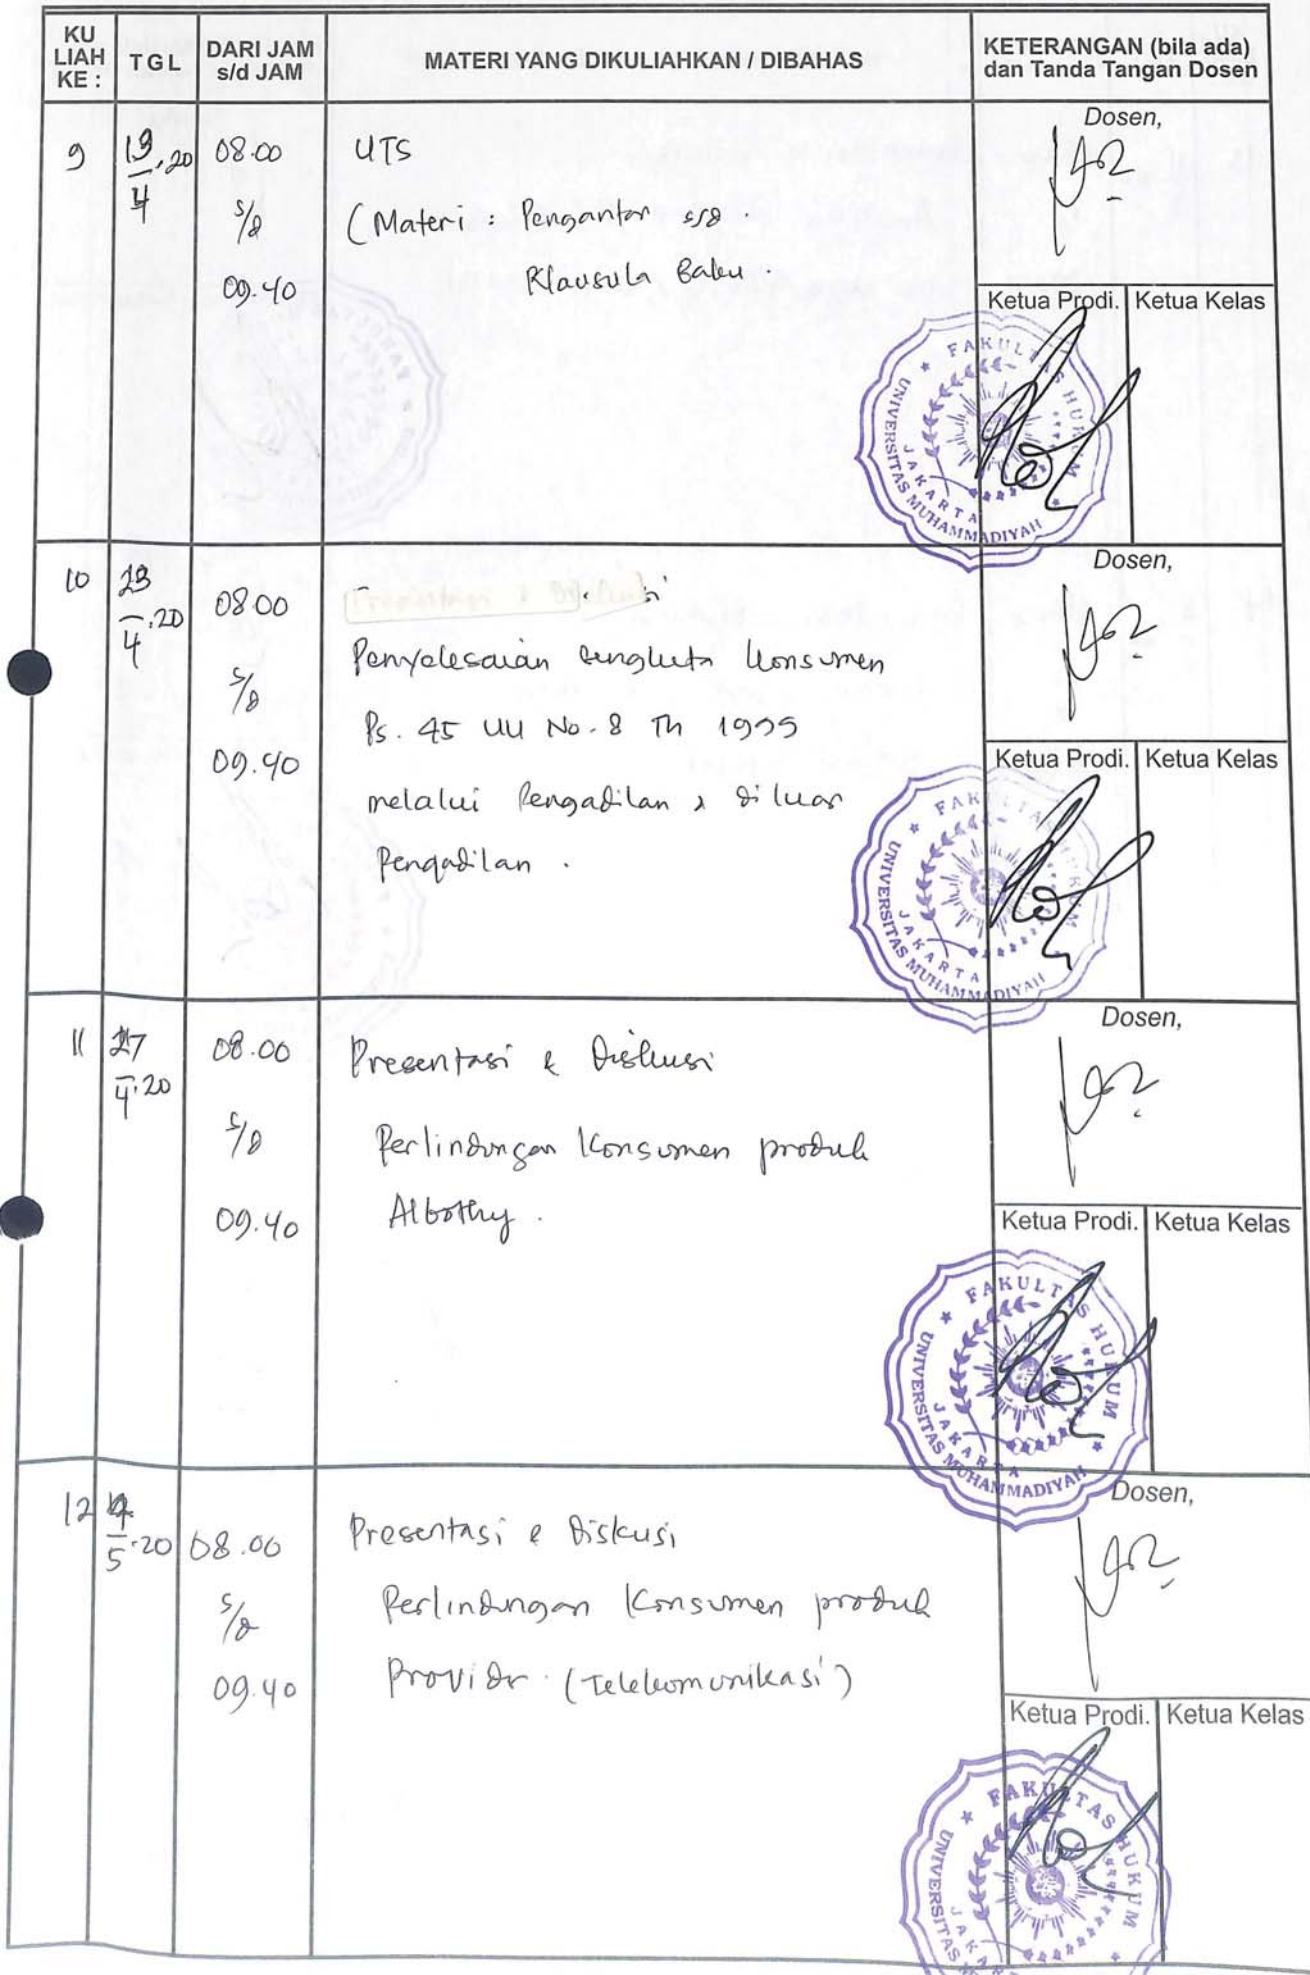 KU
LIAH
KE :
TGL
DARI JAM
s/d JAM
MATERI YANG DIKULIAHKAN / DIBAHAS
KETERANGAN (bila ada)
dan Tanda Tangan Dosen
9
19/4.20
08.00
s/d
09.40
UTS
(Materi : Pengantar s/d.
Klausula Baku.
Dosen,
Ketua Prodi.
Ketua Kelas
FAKULTAS HUKUM
UNIVERSITAS MUHAMMADIYAH
JAKARTA
10
/4.20
08.00
s/d
09.40
Penyelesaian sengketa konsumen
Ps. 45 UU No. 8 Th 1999
melalui Pengadilan & diluar
Pengadilan .
Dosen,
Ketua Prodi.
Ketua Kelas
FAKULTAS HUKUM
UNIVERSITAS MUHAMMADIYAH
JAKARTA
11
27/4.20
08.00
s/d
09.40
Presentasi & Diskusi
Perlindungan Konsumen produk
Albothy .
Dosen,
Ketua Prodi.
Ketua Kelas
FAKULTAS HUKUM
UNIVERSITAS MUHAMMADIYAH
JAKARTA
12
4/5.20
08.00
s/d
09.40
Presentasi & Diskusi
Perlindungan Konsumen produk
Providr . (Telekomunikasi)
Dosen,
Ketua Prodi.
Ketua Kelas
FAKULTAS HUKUM
UNIVERSITAS